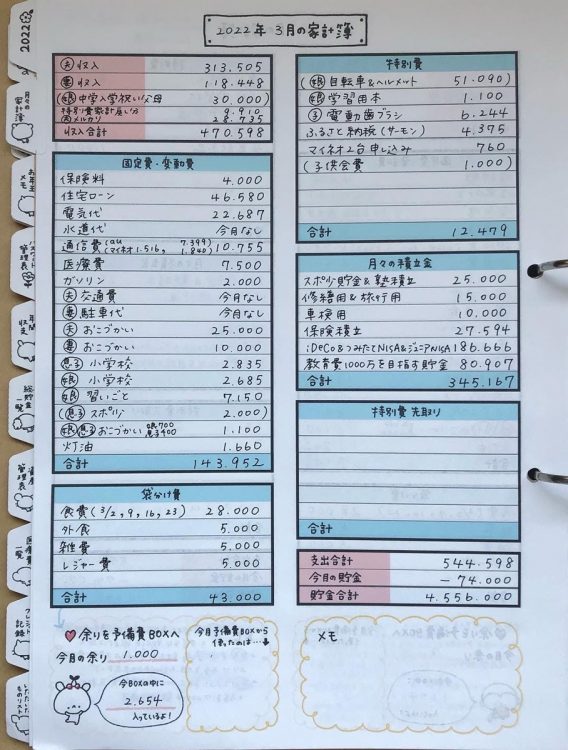 2022年 3月の家計簿
夫 収入 313.505
妻 収入 118.448
(娘 中学入学祝い父母 30.000)
特別費家計戻り分 9.910
夫 メルカリ 28.735
収入合計 470.598
固定費・変動費
保険料 4.000
住宅ローン 46.580
電気代 22.687
水道代 今月なし
通信費 (au 7.399 マイネオ 1.516, 1.840) 10.755
医療費 7.500
ガソリン 2.000
夫 交通費 今月なし
妻 駐車代 今月なし
夫 おこづかい 25.000
妻 おこづかい 10.000
息子 小学校 2.835
娘 小学校 2.685
娘 習いごと 7.150
(息子 スポ少 2.000)
娘 息子 おこづかい 娘700 息子400 1.100
灯油 1.660
合計 143.952
袋分け費
食費 (3/2, 9, 16, 23) 28.000
外食 5.000
雑費 5.000
レジャー費 5.000
合計 43.000
余りを予備費BOXへ
今月の余り 1.000
今BOXの中に
2.654
入っているよ!
今月予備費BOXから
使ったのは…
特別費
(娘 自転車&ヘルメット 51.090)
娘 学習用本 1.100
子 電動歯ブラシ 6.244
ふるさと納税 (サーモン) 4.375
マイネオ2台申し込み 760
(子供会費 1.000)
合計 12.479
月々の積立金
スポ少貯金&塾積立 25.000
修繕用&旅行用 15.000
車検用 10.000
保険積立 27.594
iDeCo&つみたてNISA&ジュニアNISA 186.666
教育費1000万を目指す貯金 80.907
合計 345.167
特別費 先取り
合計
支出合計 544.598
今月の貯金 -74.000
貯金合計 4.556.000
メモ
2022
月々の家計簿
メモ
パスワード管理表
年間収支
総貯金一覧
管理表
医療費一覧
記録
いただいたものリスト